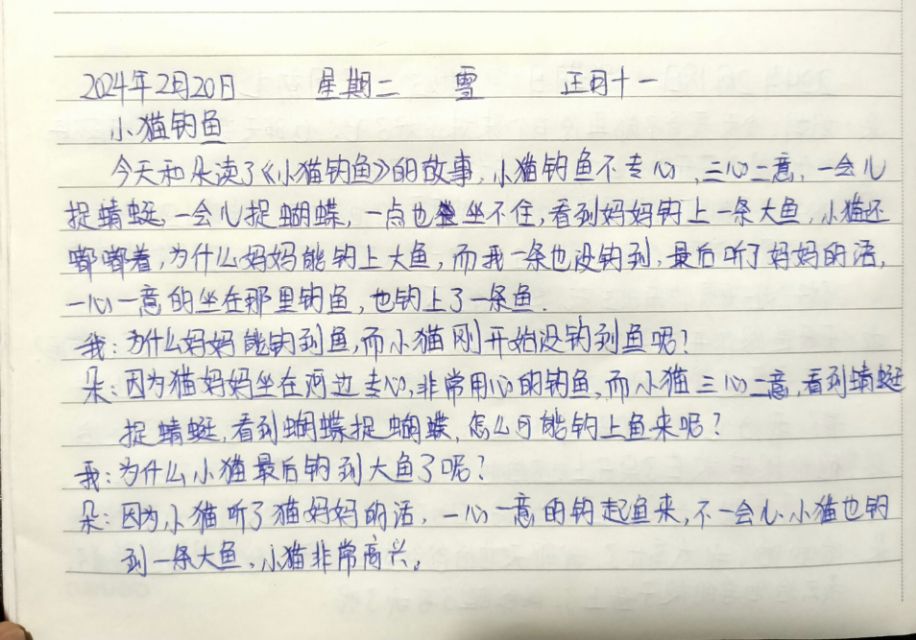 2024年2月20日 星期二 雪 正月十一
小猫钓鱼
今天和朵读了《小猫钓鱼》的故事,小猫钓鱼不专心,三心二意,一会儿
捉蜻蜓,一会儿捉蝴蝶,一点也坐不住,看到妈妈钓上一条大鱼,小猫还
嘟嘟着,为什么妈妈能钓上大鱼,而我一条也没钓到,最后听了妈妈的话,
一心一意的坐在那里钓鱼,也钓上了一条鱼.
我:为什么妈妈能钓到鱼,而小猫刚开始没钓到鱼呢?
朵:因为猫妈妈坐在河边专心,非常用心的钓鱼,而小猫三心二意,看到蜻蜓
捉蜻蜓,看到蝴蝶捉蝴蝶,怎么可能钓上鱼来呢?
我:为什么小猫最后钓到大鱼了呢?
朵:因为小猫听了猫妈妈的话,一心一意的钓起鱼来,不一会儿小猫也钓
到一条大鱼,小猫非常高兴。